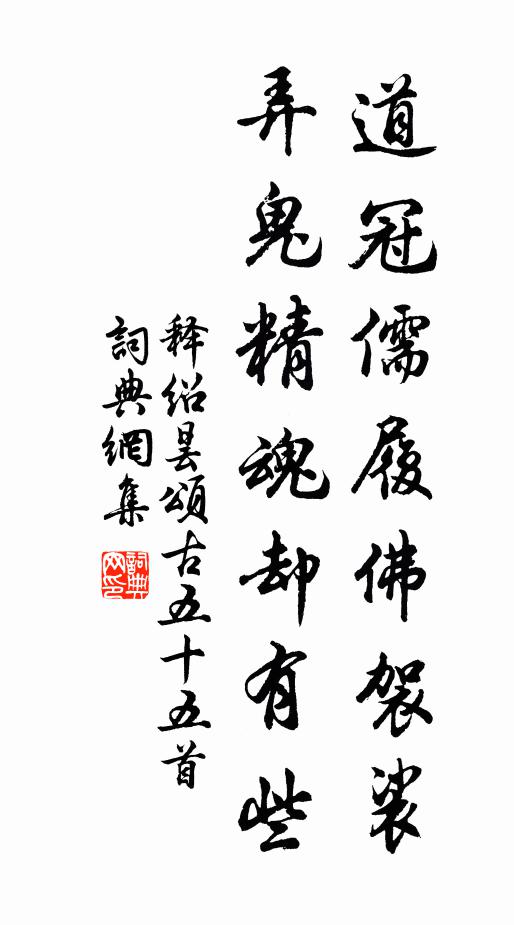 道冠儒履佛袈裟
弄鬼精魂却有些
释绍昙頌古五十五首
詞典網集
詞典网印